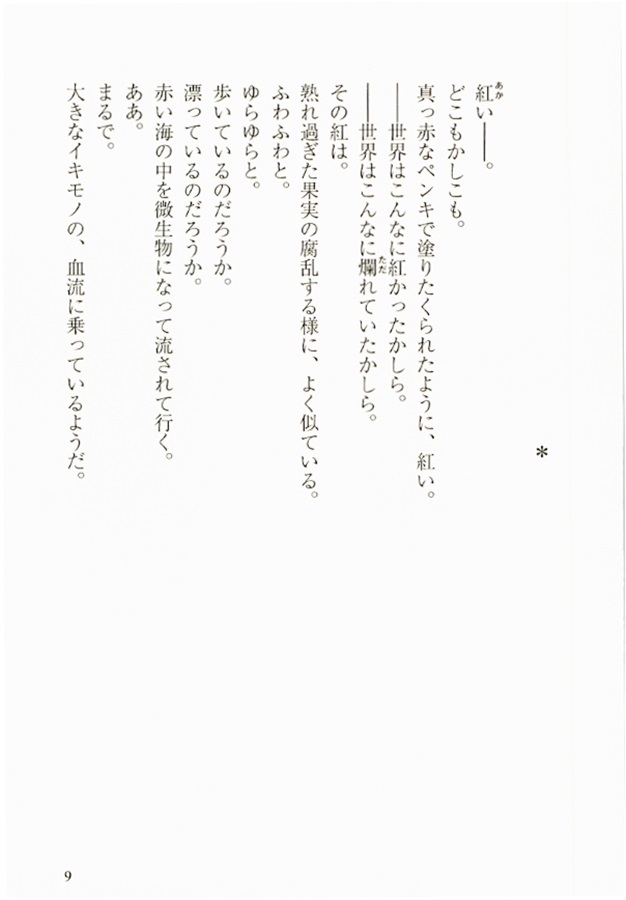 ＊
紅い――。
どこもかしこも。
真っ赤なペンキで塗りたくられたように、紅い。
――世界はこんなに紅かったかしら。
――世界はこんなに爛れていたかしら。
その紅は。
熟れ過ぎた果実の腐乱する様に、よく似ている。
ふわふわと。
ゆらゆらと。
歩いているのだろうか。
漂っているのだろうか。
赤い海の中を微生物になって流されて行く。
ああ。
まるで。
大きなイキモノの、血流に乗っているようだ。
9